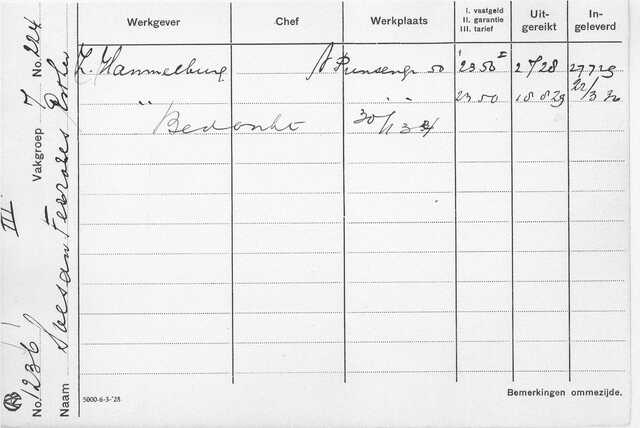 Werkgever Chef Werkplaats I. vastgeld II. garantie III. tarief Uitgereikt Ingeleverd
Z. Hammelburg A Prinsengr 50 23.50 I 2 7 28 27 7 29
" " " 23.50 18 8 29 22/3 30
Bedankt 30/1 34
5000-6-3-'28.
Bemerkingen ommezijde.
III
Vakgroep 7 No. 224
No. 1236
Naam